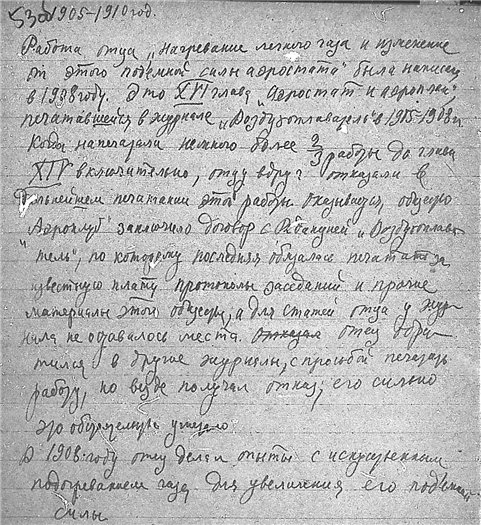 53а 1905-1910 год.
Работа отца „Нагревание легкого газа и изменение
от этого подъемной силы аэростата" была написана
в 1908 году. Это XVI глава „Аэростат и аэроплан"
печатавшейся в журнале „Воздухоплаватель" в 1905-1908 г.
Когда напечатали немного более 2/3 работы до главы
XIV включительно, отцу вдруг отказали в
дальнейшем печатании этой работы. Оказывается, общество
„Аэроклуб" заключило договор с Редакцией „Воздухоплава-
тель", по которому последняя обязалась печатать за
известную плату протоколы заседаний и прочие
материалы этого общества, а для статей отца у жур-
нала не оставалось места. Отец обра-
тился в другие журналы, с просьбой печатать
работу, но везде получал отказ; его сильно
это обстоятельство
В 1908 году отец делал опыты с искусственным
подогреванием газа, для увеличения его подъемной
силы